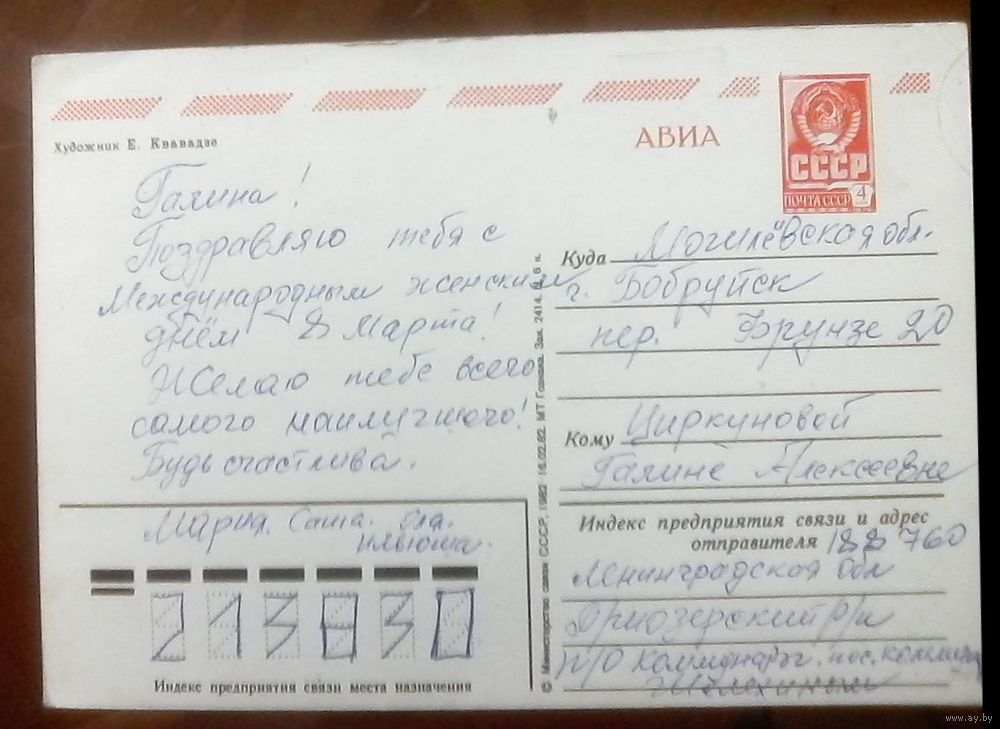 АВИА
СССР
ПОЧТА СССР 4
Художник Е. Квавадзе
Галина!
Поздравляю тебя с
Международным женским
днём 8 Марта!
Желаю тебе всего
самого наилучшего!
Будь счастлива.
Мария. Саша. Оля.
Илюша.
213830
Индекс предприятия связи места назначения
© Министерство связи СССР, 1982 16.02.82. МТ Гознака. Зак. 2414. 6 к.
Куда Могилёвская обл.
г. Бобруйск
пер. Фрунзе 20
Кому Циркуновой
Галине Алексеевне
Индекс предприятия связи и адрес
отправителя 188760
Ленинградская обл
Приозерский р/н
п/о Коммунары. пос.
www.ay.by